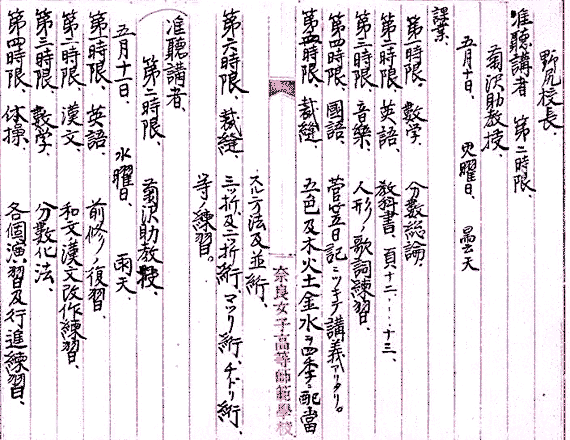 野尻校長、
准聽講者 第二時限、
菊沢助教授、
五月十日、 火曜日、 曇天
課業、
第一時限、 数学、 分数総論、
第二時限、 英語、 教科書、頁十二、-十三、
第三時限、 音樂、 人形ノ歌詞練習、
第四時限、 國語、 菅笠日記ニツキテ講義アリタリ。
第五時限、 裁縫、 五色及木火土金水ヲ四季ニ配當
奈良女子高等師範學校
スル方法及並絎、
第六時限、 裁縫、 三ッ折及二折絎、マツリ絎、チドリ絎、
等ノ練習。
准聽講者、
第二時限、 菊沢助教授、
五月十一日、 水曜日、 雨天、
第一時限、 英語、 前修ノ復習、
第二時限、 漢文、 和文漢文改作練習、
第三時限、 数学、 分数化法、
第四時限、 体操、 各個演習及行進練習、